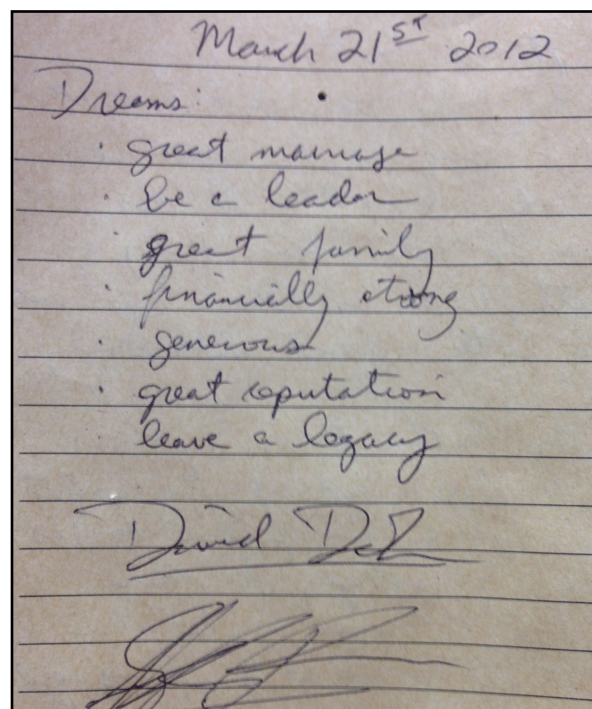 March 21ST 2012
Dreams:
· great marriage
· be a leader
· great family
· financially strong
· generous
· great reputation
· leave a legacy
David